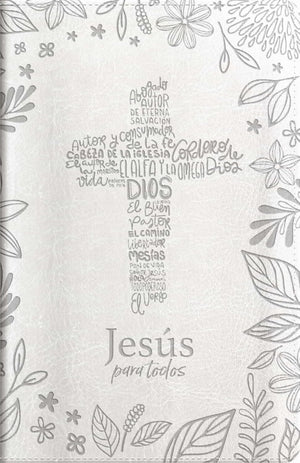 Abogado
AUTOR
DE ETERNA
SALVACIÓN
Autor y consumador
de la fe
CABEZA DE LA IGLESIA Cordero de Dios
El autor de la vida
EL ALFA Y LA OMEGA
DIOS
El Buen
Pastor
EL CAMINO
libertador
MESÍAS
PAN DE VIDA
TODOPODEROSO
El Verbo
Jesús
para todos